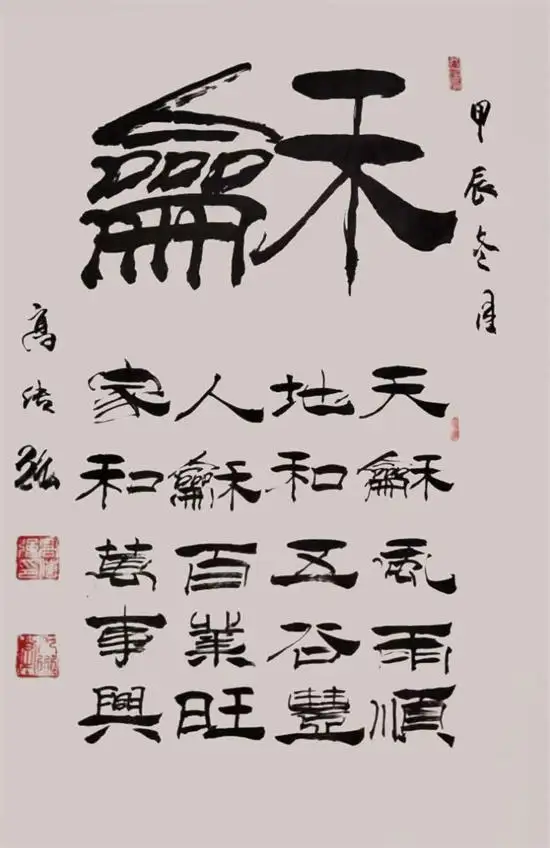 龢
甲辰冬月
天龢風雨順
地和五谷豐
人龢百業旺
家和萬事興
高